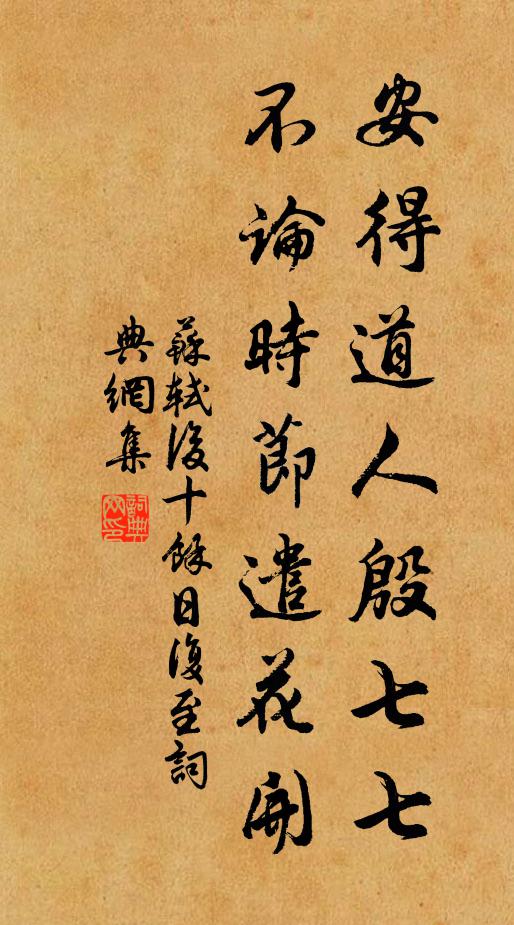 安得道人殷七七
不論時節遣花開
蘇軾後十餘日復至詞
典網集
詞典网印